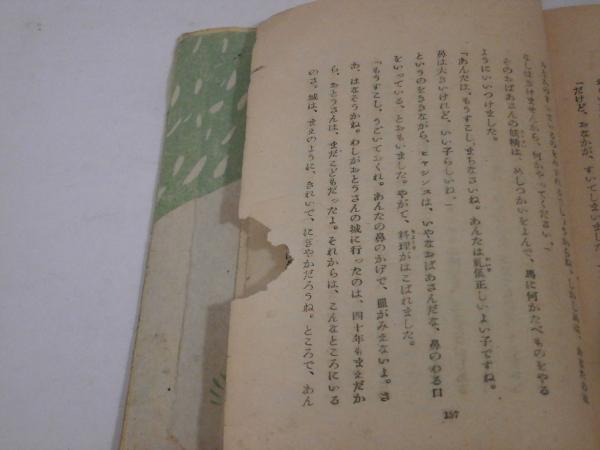 「だけど、おなかが、すいてしまいました
なしはきけませんから、何かやってください。」
そのおばあさんの妖精は、めしつかいをよんで、馬に何かたべものをやる
ようにいいつけました。
「あんたは、もうすこし、まちなさいね。あんたは礼儀正しいよい子ですね。
鼻は大きいけれど、いい子らしいね。」
というのをききながら、ヒヤシンスは、いやなおばあさんだな、鼻のわる口
をいっている、とおもいました。やがて、料理がはこばれました。
「もうすこし、うごいておくれ。あんたの鼻のかげで、皿がみえないよ。さ
あ、はなそうかね。わしがおとうさんの城に行ったのは、四十年もまえだか
ら、おとうさんは、まだこどもだったよ。それからは、こんなところにいる
のさ。城は、まえのように、きれいで、にぎやかだろうね。ところで、あん
157